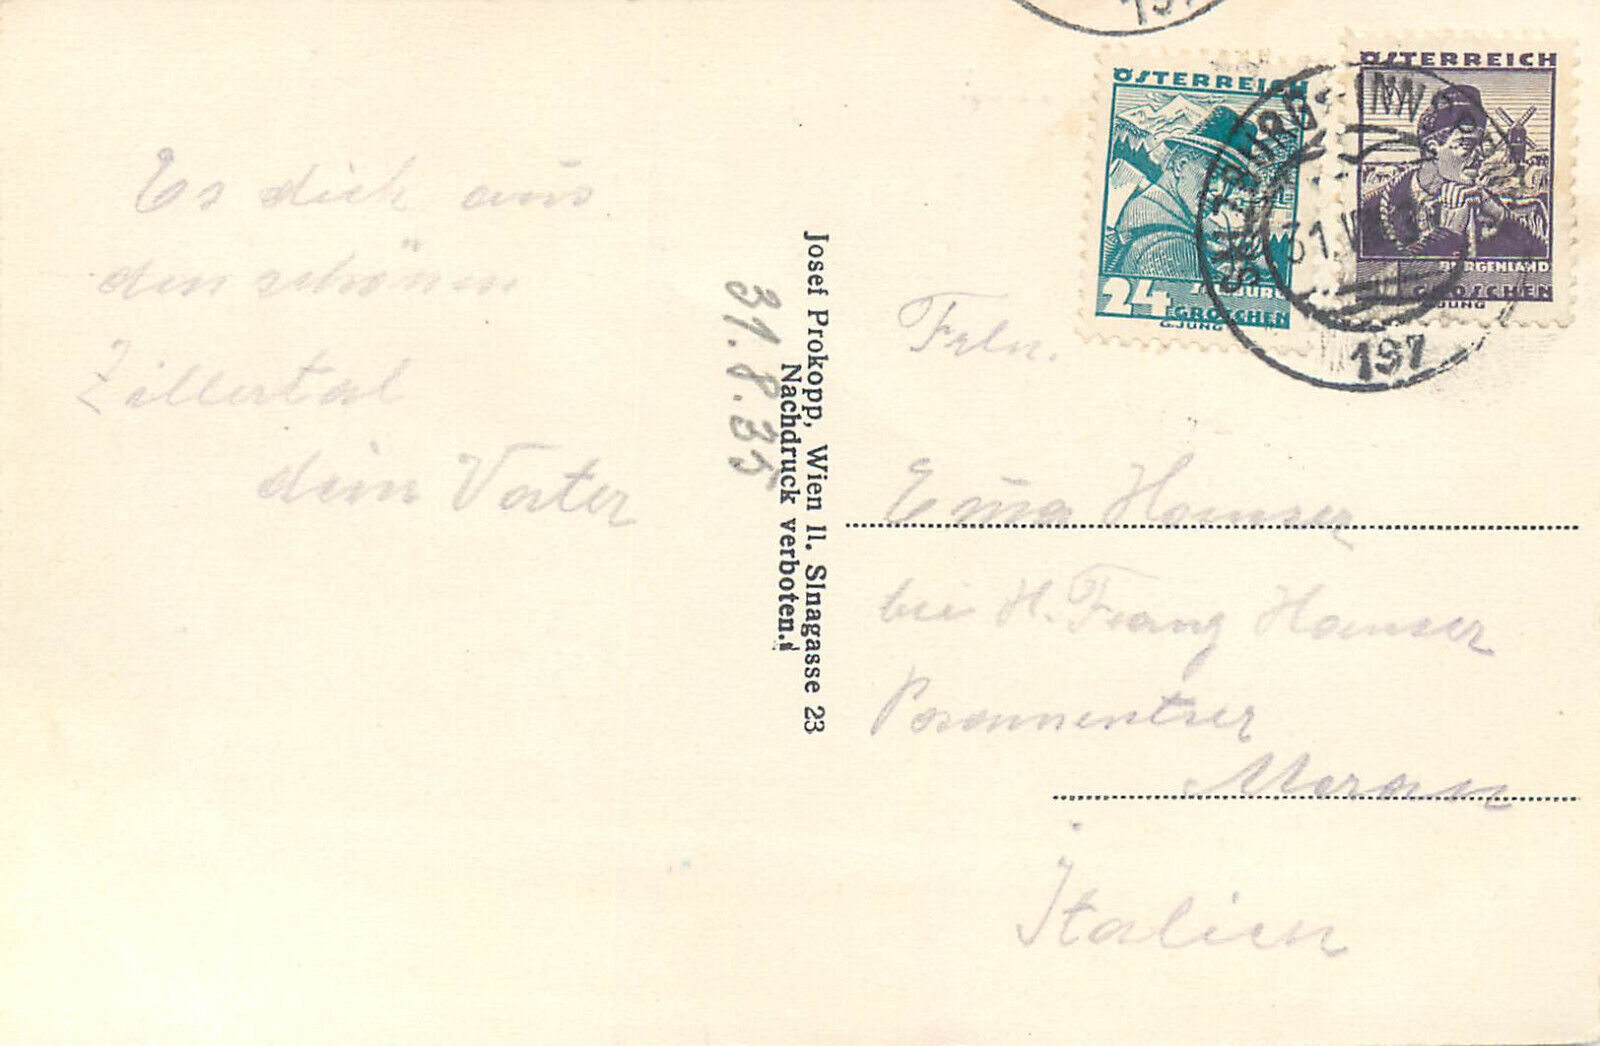 Es dich aus
den schönen
Zillertal
dein Vater
Josef Prokopp, Wien II. SInagasse 23
Nachdruck verboten.
31.8.35
197
ÖSTERREICH
24 GROSCHEN
G.JUNG
ÖSTERREICH
BURGENLAND
GROSCHEN
G.JUNG
SALZBURG-INNSBRUCK
31.VIII
197
Frln.
Emma Hamser
bei H. Franz Hamser
Posamentrer
Meran
Italien